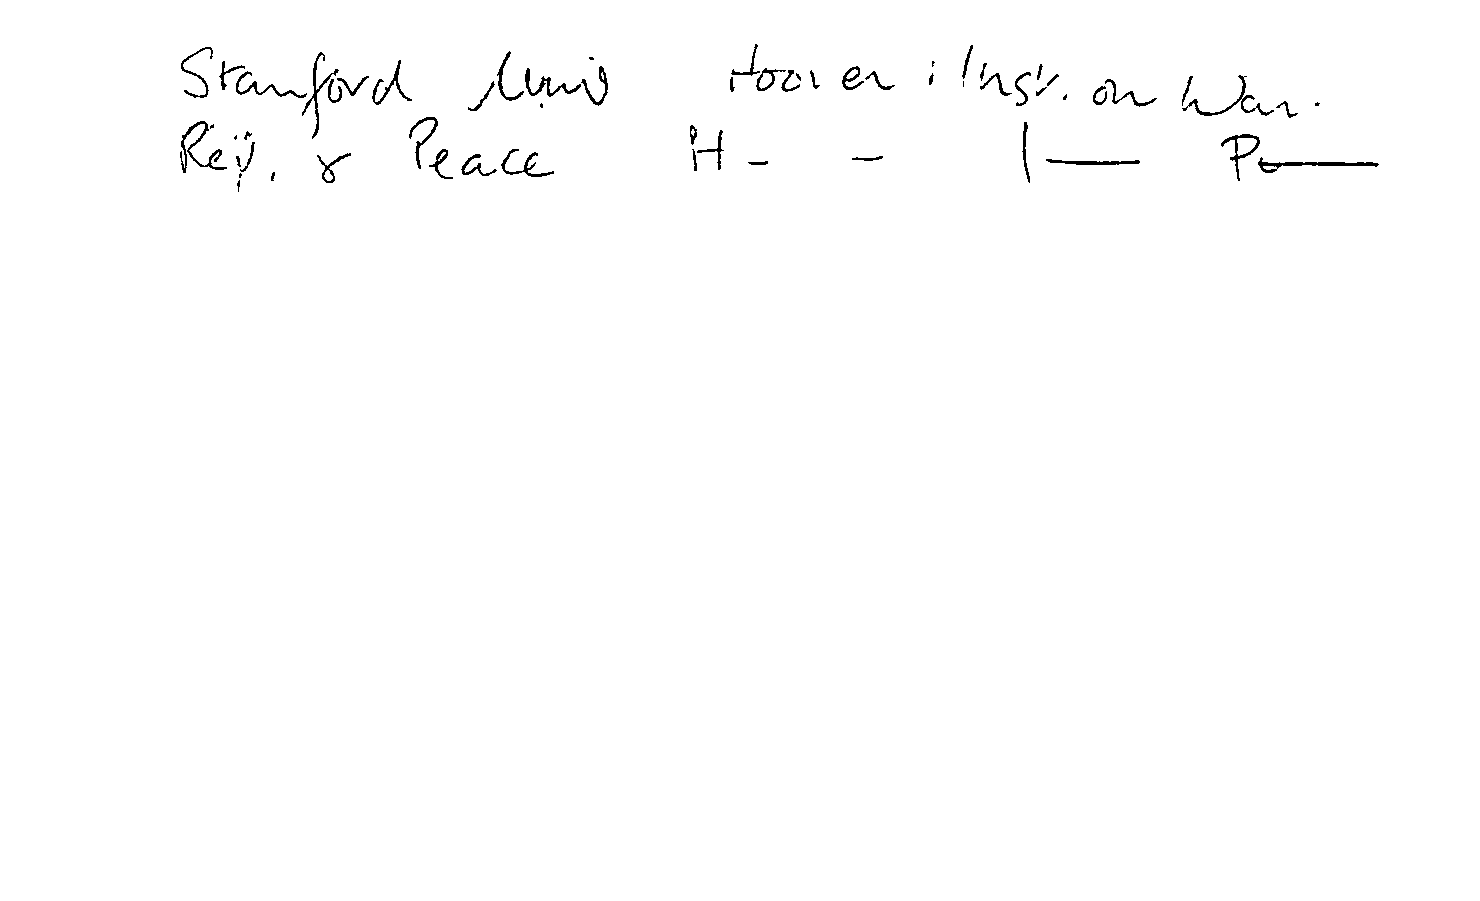 Stanford Univ Hoover Inst. on War.
Rev. & Peace H - - I — P